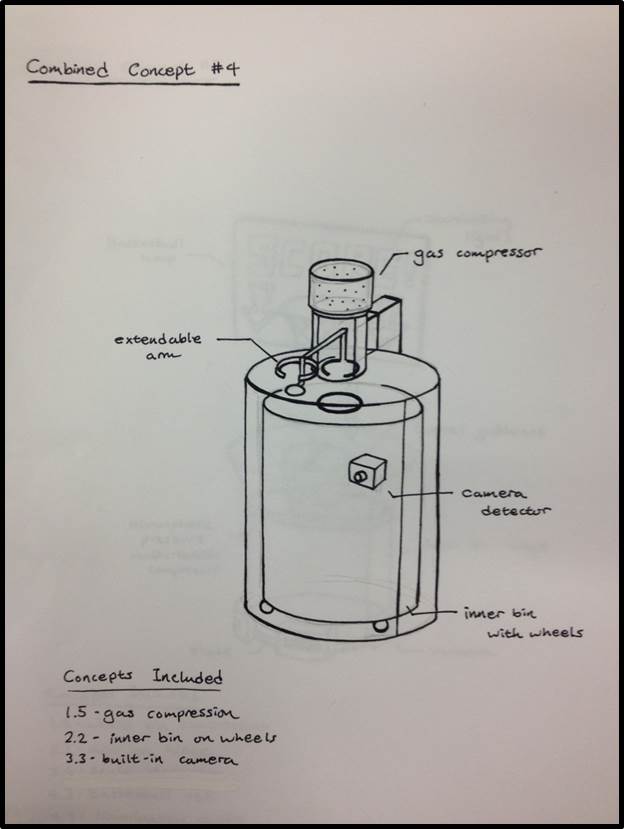 Combined Concept #4
gas compressor
extendable
arm
camera
detector
inner bin
with wheels
Concepts Included
1.5 - gas compression
2.2 - inner bin on wheels
3.3 - built-in camera